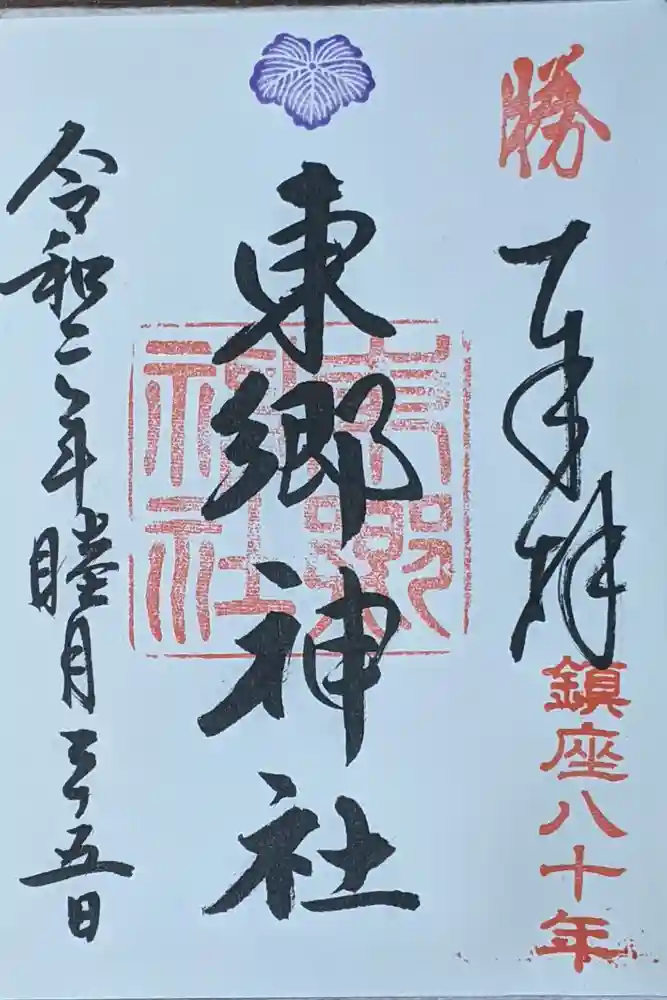 勝
奉拝
鎮座八十年
東郷神社
東郷
神社
令和二年睦月二十五日